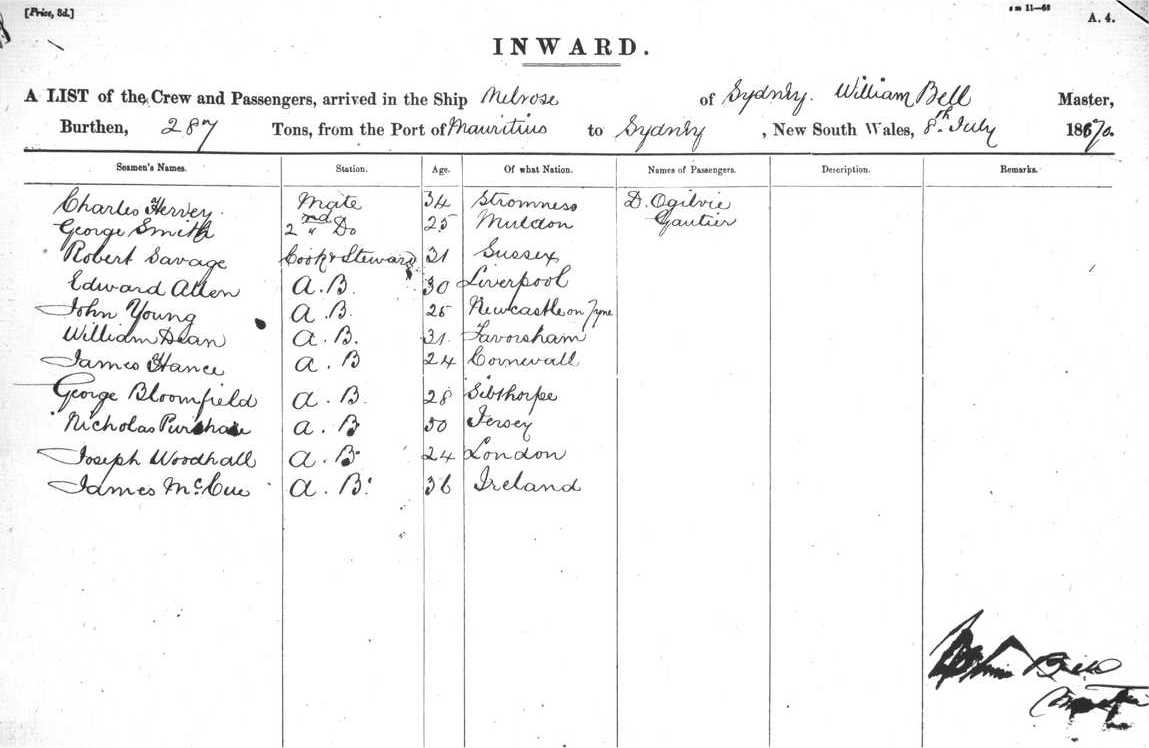 [Price, 3d.]
A. 4.
INWARD.
A LIST of the Crew and Passengers, arrived in the Ship Melrose of Sydney. William Bell Master,
Burthen, 287 Tons, from the Port of Mauritius to Sydney, New South Wales, 8th July 1870.
Seamen's Names. Station. Age. Of what Nation. Names of Passengers. Description. Remarks.
Charles Hervey. Mate 34 Stromness D. Ogilvie
George Smith 2nd " Do 25 Muldon Gautier
Robert Savage Cook & Steward 31 Sussex
Edward Allen A.B. 30 Liverpool
John Young A.B. 25 Newcastle on Tyne
William Dean A.B. 31. Favorsham
James Hance A.B 24 Cornewall
George Bloomfield A.B. 28 Sibthorpe
Nicholas Purchase A.B 50 Jersey
Joseph Woodhall A.B. 24 London
James McCue A.B. 36 Ireland
Bell
Master